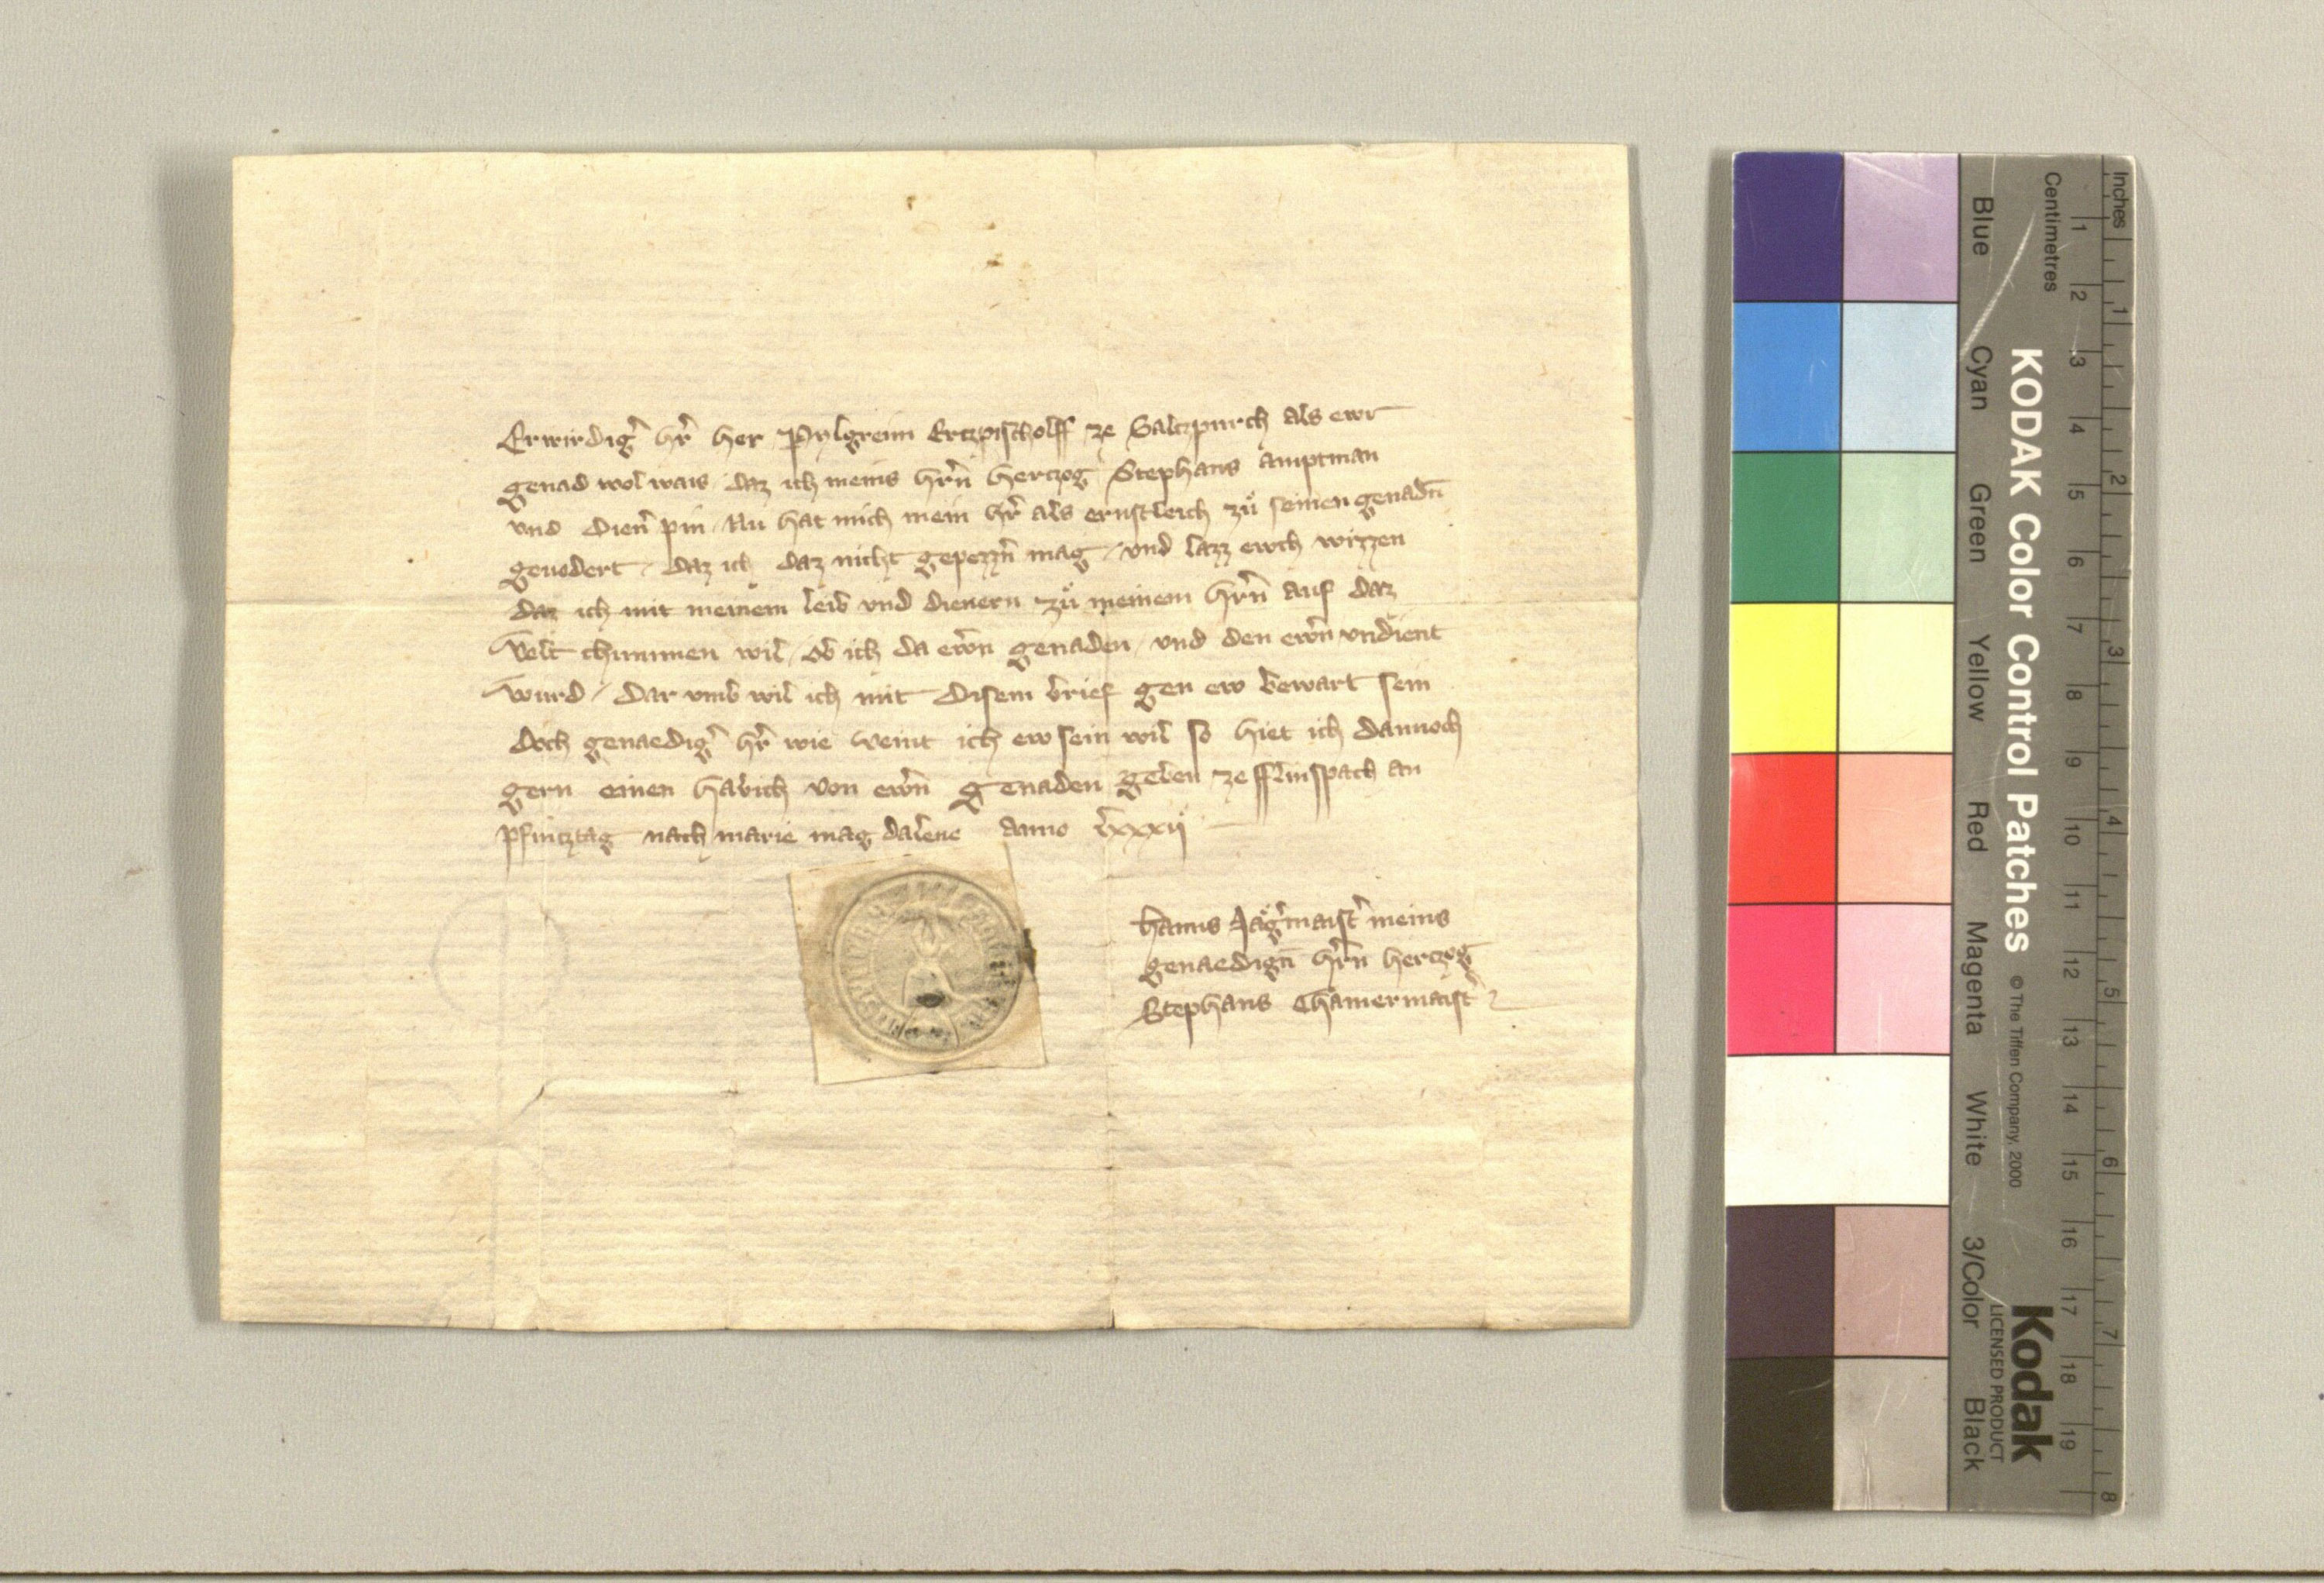 Erwirdig' hr̄ her Pylgreim Ertzpischolff ze Saltzpurch als ewr
genad wol wais daz ich meins hr̄n hertzog Stephans amptman
vnd dien' pin / Nu hat mich mein hr̄ als ernstleich zů seinen genadn̄
geuodert / daz ich daz nicht gepezzn̄ mag / vnd lazz ewch wizzen
daz ich mit meinem leib vnd dienern zů meinem hr̄n auf daz
Velt chummen wil / ob ich da ewr̄n genaden / vnd den ewr̄n vndient
wurd / dar vmb wil ich mit disem brief gen ew bewart sein
doch genaedig' hr̄ wie veint ich ew sein wil so hiet ich dannoch
gern einen habich von ewr̄n genaden geben ze fflinspach an
pfintztag nach marie magdalene anno lxxxij
Hanns Jägmaist' meins
genaedign̄ hr̄n hertzog
Stephans Chamermaist'
KODAK Color Control Patches © The Tiffen Company, 2000
Kodak
LICENSED PRODUCT
Inches 1 2 3 4 5 6 7 8
Centimetres 1 2 3 4 5 6 7 8 9 10 11 12 13 14 15 16 17 18 19
Blue Cyan Green Yellow Red Magenta White 3/Color Black